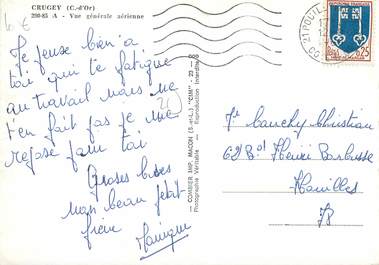 CRUGEY (C.-d'Or)
290-85 A - Vue générale aérienne
6 €
Je pense bien a
toi qui te fatigue
au travail mais ne
t'en fait pas je me
repose pour toi
Groses bises
mon beau petit
Monique
COMBIER IMP. MACON (S.-et-L.) "CIM"
Photographie Véritable - Reproduction Interdite
21 POUILL
17
0,25
Mr Cauchy Christian
62 Bd Henri Barbusse
Houilles
78